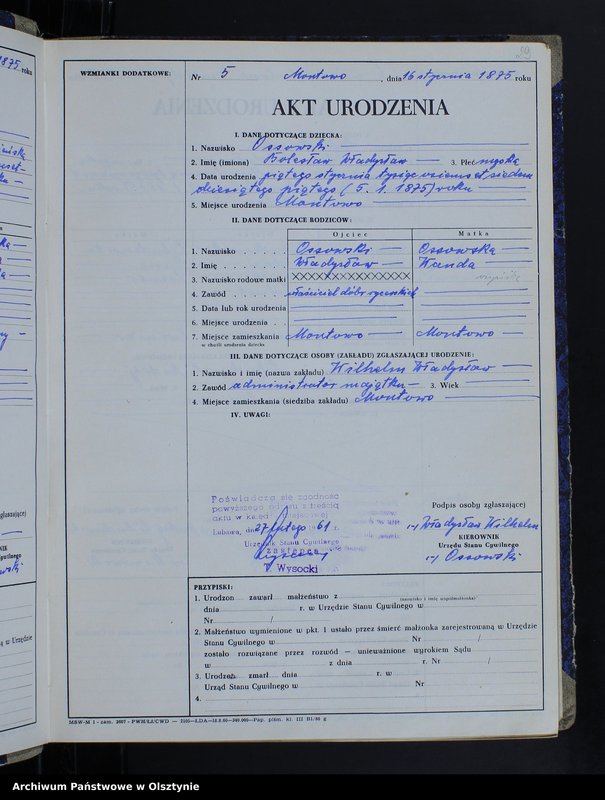 29
WZMIANKI DODATKOWE:
Nr 5 Montowo, dnia 16 stycznia 1875 roku
AKT URODZENIA
I. DANE DOTYCZĄCE DZIECKA:
1. Nazwisko Ossowski
2. Imię (imiona) Bolesław Władysław 3. Płeć męska
4. Data urodzenia piątego stycznia tysiąc osiemset siedem
dziesiątego piątego (5. 1. 1875) roku
5. Miejsce urodzenia Montowo
II. DANE DOTYCZĄCE RODZICÓW:
Ojciec Matka
1. Nazwisko Ossowski Ossowska
2. Imię Władysław Wanda
3. Nazwisko rodowe matki XXXXXXXXXXXXX
4. Zawód właściciel dóbr rycerskich
5. Data lub rok urodzenia
6. Miejsce urodzenia
7. Miejsce zamieszkania Montowo Montowo
w chwili urodzenia dziecka
III. DANE DOTYCZĄCE OSOBY (ZAKŁADU) ZGŁASZAJĄCEJ URODZENIE:
1. Nazwisko i imię (nazwa zakładu) Wilhelm Władysław
2. Zawód administrator majątku 3. Wiek
4. Miejsce zamieszkania (siedziba zakładu) Montowo
IV. UWAGI:
Poświadcza się zgodność
powyższego odpisu z treścią
aktu w księdze miejscowej
Lubawa, dn. 27 lutego 1961 r.
Urzędnik Stanu Cywilnego
zastępca
T. Wysocki
Podpis osoby zgłaszającej
-/ Władysław Wilhelm
KIEROWNIK
Urzędu Stanu Cywilnego
-/ Ossowski
PRZYPISKI:
1. Urodzon zawarł małżeństwo z
(nazwisko i imię współmałżonka)
dnia r. w Urzędzie Stanu Cywilnego w
Nr /
2. Małżeństwo wymienione w pkt. 1 ustało przez śmierć małżonka zarejestrowaną w Urzędzie
Stanu Cywilnego w Nr /
zostało rozwiązane przez rozwód — unieważnione wyrokiem Sądu
w z dnia r. Nr /
3. Urodzon zmarł dnia r. w
Urząd Stanu Cywilnego w Nr
4.
Archiwum Państwowe w Olsztynie